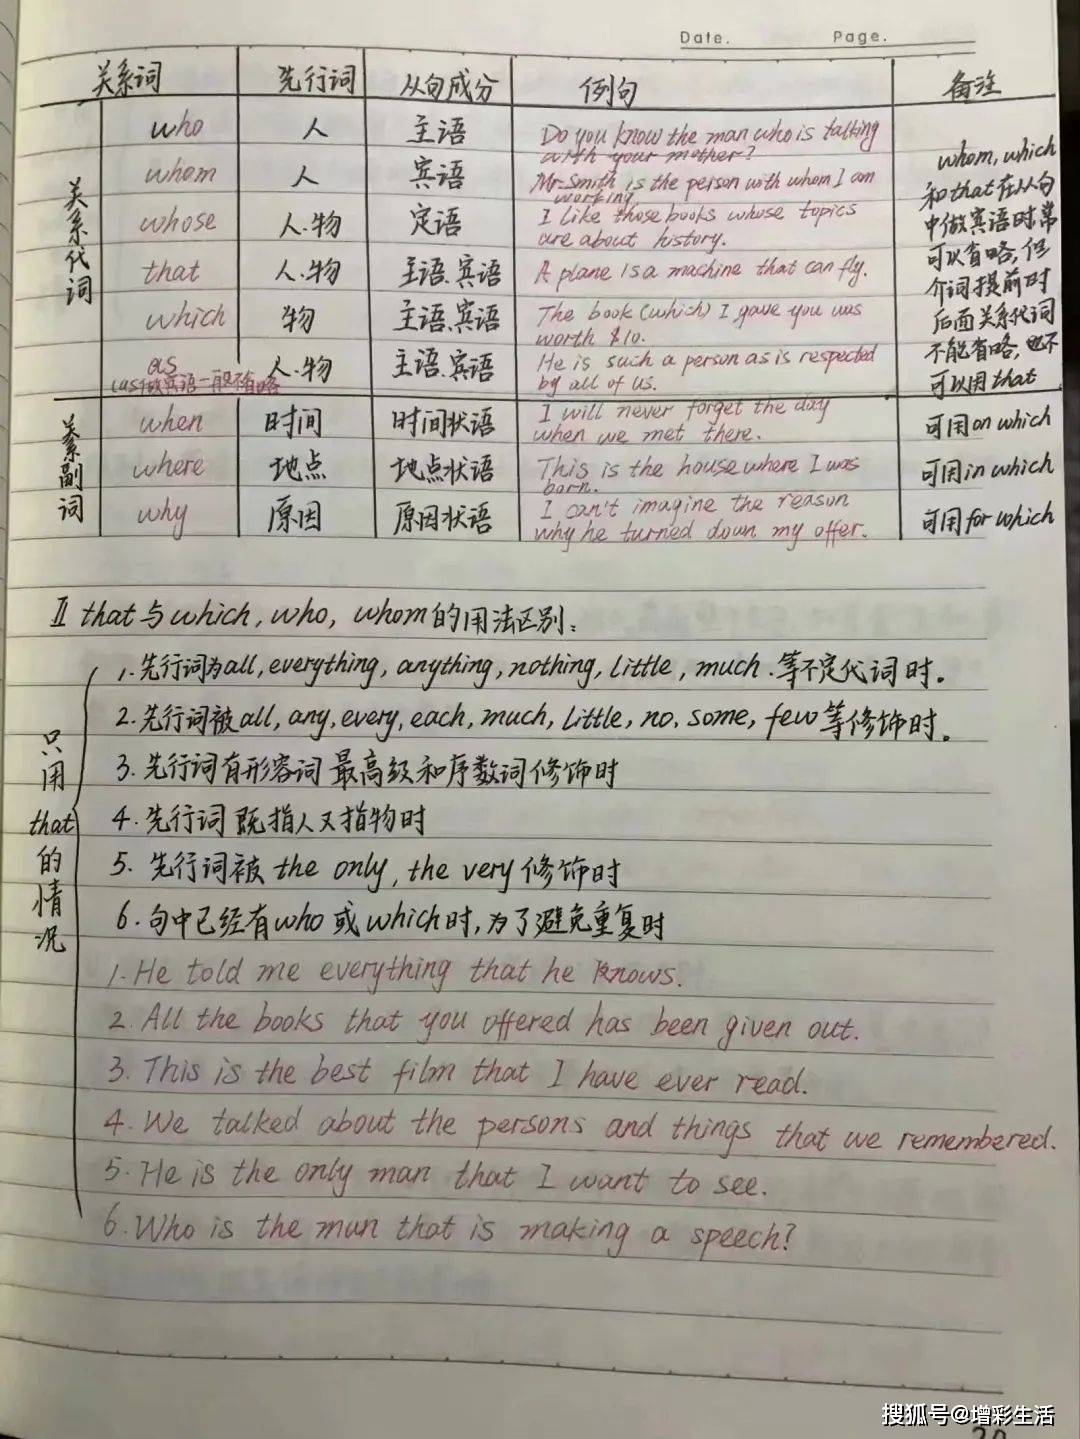 Date. Page.
关系词 先行词 从句成分 例句 备注
关系代词
who 人 主语 Do you know the man who is talking
with your mother?
whom 人 宾语 Mr. Smith is the person with whom I am
working
whose 人.物 定语 I like those books whose topics
are about history.
that 人.物 主语.宾语 A plane is a machine that can fly.
which 物 主语.宾语 The book (which) I gave you was
worth $10.
as 人.物 主语.宾语 He is such a person as is respected
(as做宾语一般不省略
by all of us.
whom, which
和that在从句
中做宾语时常
可以省略,但
介词提前时
后面关系代词
不能省略,也不
可以用that
关系副词
when 时间 时间状语 I will never forget the day
when we met there.
可用on which
where 地点 地点状语 This is the house where I was
born.
可用in which
why 原因 原因状语 I can't imagine the reason
why he turned down my offer.
可用for which
Ⅱ that与which, who, whom的用法区别:
只用that的情况
1.先行词为all, everything, anything, nothing, little, much.等不定代词时。
2.先行词被all, any, every, each, much, little, no, some, few等修饰时。
3.先行词有形容词最高级和序数词修饰时
4.先行词既指人又指物时
5.先行词被the only, the very修饰时
6.句中已经有who或which时,为了避免重复时
1.He told me everything that he knows.
2.All the books that you offered has been given out.
3.This is the best film that I have ever read.
4.We talked about the persons and things that we remembered.
5.He is the only man that I want to see.
6.Who is the man that is making a speech?
搜狐号@增彩生活